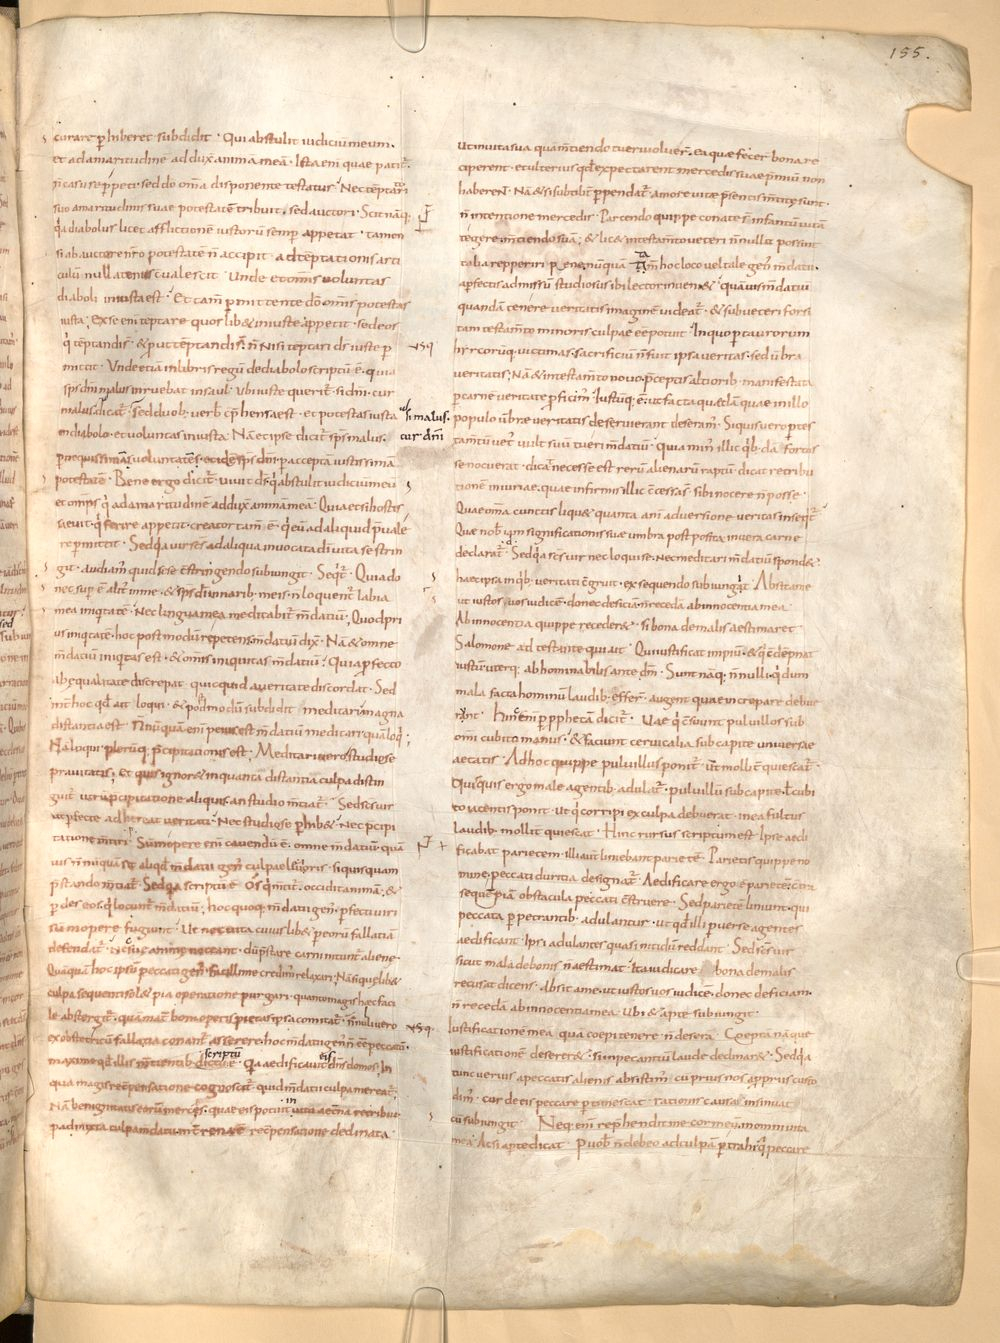 155.
curare p̄hiberet subdidit · Qui abstulit iudiciū meum.
et ad amaritudine adduxit animā meā · Ista eni quae patit̄
n̄ casu se pp̄eti sed dō om̄a disponente testatur · Nec tēptatori
suo amaritudinis suae potestatē tribuit, sed auctori · Scit nāq;
q̄a diabolus licet afflictionē iustorū semp̄ appetat · tamen
si ab auctore nr̄o potestatē n̄ accipit · ad tēptationis arti
culū nullatenus cualescit · Unde et om̄is uoluntas
diaboli iniusta est · Et tam̄ pmittente dō om̄is potestas
iusta; Ex se eni tēptare quoslib& iniuste appetit · sed eos
q̄ tēptandi s̄ · & put tēptandi s̄ · n̄ nisi tēptari dš iuste p
mittit · Unde etiā in libris regū de diabolo scriptū ē · quia
sp̄s dn̄i malus inruebat in saul · Ubi iuste querit̄ · si dn̄i · cur
malus dicat̄ · Sed duob; uerb cp̄hensa est · et potestas iusta
si malus.
in diabolo · et uoluntas iniusta · Nā et ipse dicit̄ sp̄s malus ·
cur dn̄i
p nequissimā uoluntatē · et idē sp̄s dn̄i · p acceptā iustissimā
potestatē · Bene ergo dicit̄ · uiuit dš q̄ abstulit iudiciū meū
et omp̄s q̄ ad amaritudinē adduxit animā meā · Quia et si hostis
saeuit · q̄ ferire appetit · creator tam̄ ē · q̄ eū ad aliquid pualē
re pmittit · Sed q̄a uir sc̄s ad aliqua inuocata dī uita se strin
git · audiam quid se se cstringendo subiungit · Seqt̄ · Quia do
nec sup ē alit in me · & sp̄s dī in narib; meis · n̄ loquent̄ labia
mea iniqtatē · Nec lingua mea meditabit̄ m̄datiū · Quod pri
us iniqtatē · hoc post modū repetens m̄datiū dix̄ · Nā & omne
m̄datiū iniqtas est · & om̄is iniquitas m̄datiū · Quia pfecto
ab equalitate discrepat · quicquid a ueritate discordat · Sed
int̄ hoc qd̄ ait loqui · & qd̄ post modū subdidit meditari magna
distantia est · Nonnūquā eni peius est m̄datiū meditari quā loqi ·
Nā loqui plerūq; pcipitationis est · Meditari uero studiose
prauitatis · Et quis ignor& in quanta distantia culpa distin
guit̄ · utrū pcipitatione aliquis · an studio m̄tiat̄ · Sed sc̄s uir
ut pfecte adhereat ueritati · Nec studiose phib& · Nec pcipi
tatione m̄tiri · Sūmopere eni cauendū ē · omne m̄datiū · quā
uis n̄nūquā sit aliqd̄ m̄datii gen̄ culpae leuioris · si quisquam
pstando m̄tiat̄ · Sed q̄a scriptū ē · Os q̄ m̄tit̄ · occidit animā · &
pdes eos · q̄ locunt̄ m̄datiū; hoc quoq; m̄datii gen̄ pfecti uiri
sūmopere fugiunt · Ut nec uita cuiuslib& p eorū fallatiā
defendat̄ · Ne suę animę noceant · dū pstare carni initunt̄ alienę ·
Quāquā hoc ipsū peccati gen̄ facillime credim̄ relaxari; Nā si quęlib&
culpa sequenti sol& pia operatione purgari · quanto magis hęc faci
le abstergit̄ · quā mat̄ boni operis pietas ipsa comitat̄ · N̄nulli uero
ex obstetricū fallatia conant̄ asserere · hoc m̄datii gen̄ n̄ ēē peccatū ·
maxime qd̄ illis m̄tientib; dictū ē scriptū · Qa aedificauit eis dn̄s domos; In
qua magis recp̄ensatione cognoscit̄ · quid m̄datii culpa mercat̄;
Nā benignitatis eorū merces · quae eis potuit in uita aeterna retribui
p admixta culpa m̄datii in terrenā ē recp̄ensatione declinata ·
ut in uita sua quā m̄tiendo tueri uoluer̄ · ea quę fecer̄ bona re
ciperent · et ulterius qd̄ expectarent mercedis suae pmiū non
haberen̄ · Nā & si subtilit̄ ppendat̄ · amore uitae psentis m̄titę sunt ·
n̄ intentione mercedis · Parcendo quippe conatę s̄ infantū uitā
tegere · m̄tiendo suā; & lic& in testam̄to ueteri n̄nulli possint
talia repperiri · pene nūquā tā hoc loco uel tale gen̄ m̄datii ·
a pfectis admissū studiosus ibi lector inueni& · quāuis m̄datiū
quandā tenere ueritatis imaginē uideat̄ · & sub ueteri forsi
tam testam̄to minoris culpae eē potuit · In quo p taurorum
hircorūq; uictimas · sacrificiū n̄ fuit ipsa ueritas · sed ūbra
ueritatis; Nā & in testam̄to nouo · pceptis altiorib; manifestata
p carne ueritate pficim̄ · Iustūq; ē · ut facta quaedā quae in illo
populo ūbrę ueritatis deseruierant deseram̄ · Si quis uero p tes
tam̄tū uet̄ uult suū tueri m̄datiū · quia min̄ illic qb; dā fortas
se nocuerat · dicat̄ necesse est rerū alienarū raptū · dicat retribu
tionē iniuriae · quae infirmis illic ccessa s̄ · sibi nocere n̄ posse ·
Quae om̄a cunctis liqu& · quanta animaduersione ueritas inseqt̄ ·
Quę nob iam significationis suae umbra post posita in uera carne
declarat̄ · Sed q̄a sc̄s uir nec loqui se · nec meditari m̄datiū spond& ·
haec ipsa in qb; ueritati cgruit · exsequendo subiungit · Absit a me
ut iustos uos iudicē · donec deficiā n̄ recedā ab innocentia mea
Ab innocentia quippe receder& · si bona de malis aestimaret ·
Salomone ad testante qui ait · Qui iustificat impiū · & q̄ cdēpnat
iustū · uterq; abhominabilis ante dm̄ · Sunt nāq; n̄nulli · q̄ dum
mala facta hominū laudib; efferr̄ · augent quae increpare debue
rint · Hinc eni p pphetā dicit̄ · Uae q̄ csuunt puluillos sub
om̄i cubito manus · & faciunt ceruicalia sub capite uniuersae
aetatis · Ad hoc quippe puluillus ponit̄ · ut mollit̄ quiescat̄ ·
Quisquis ergo male agentib; adulat̄ · puluillū sub capite ł cubi
to iacentis ponit · ut q̄ corripi ex culpa debuerat · in ea fultus
laudib; mollit̄ quiescat · Hinc rursus scriptum est · Ipse aedi
ficabat parietem · illi aut̄ liniebant parietē · Parietis quippe no
mine · peccati duritia designat̄ · Aedificare ergo ē parietē · contra
se quēpiā obstacula peccati cstruere · Sed parietē liniunt · qui
peccata ppetrantib; adulantur · ut qd̄ illi puerse agentes
aedificant · Ipsi adulantes quasi nitidū reddant · Sed sc̄s uir
sicut mala de bonis n̄ aestimat · ita iudicare bona de malis
recusat dicens · Absit a me · ut iustos uos iudicē · donec deficiam ·
n̄ recedā ab innocentia mea · Ubi & apte subiungit ·
Iustificatione mea quā coepi tenere n̄ deserā · Coepta nāque
iustificationē deserer& · si in peccantiū laude declinar& · Sed q̄a
tunc uerius a peccatis alienis absistim̄ · cū prius nos a ppriis custo
dim̄ · cur de eis peccare ptimescat · rationis causas insinuat
cū subiungit · Neq; eni reph̄endit me cor meū in om̄i uita
mea · Ac si apte dicat · P uob n̄ debeo ad culpā ptrahi · q̄ peccare